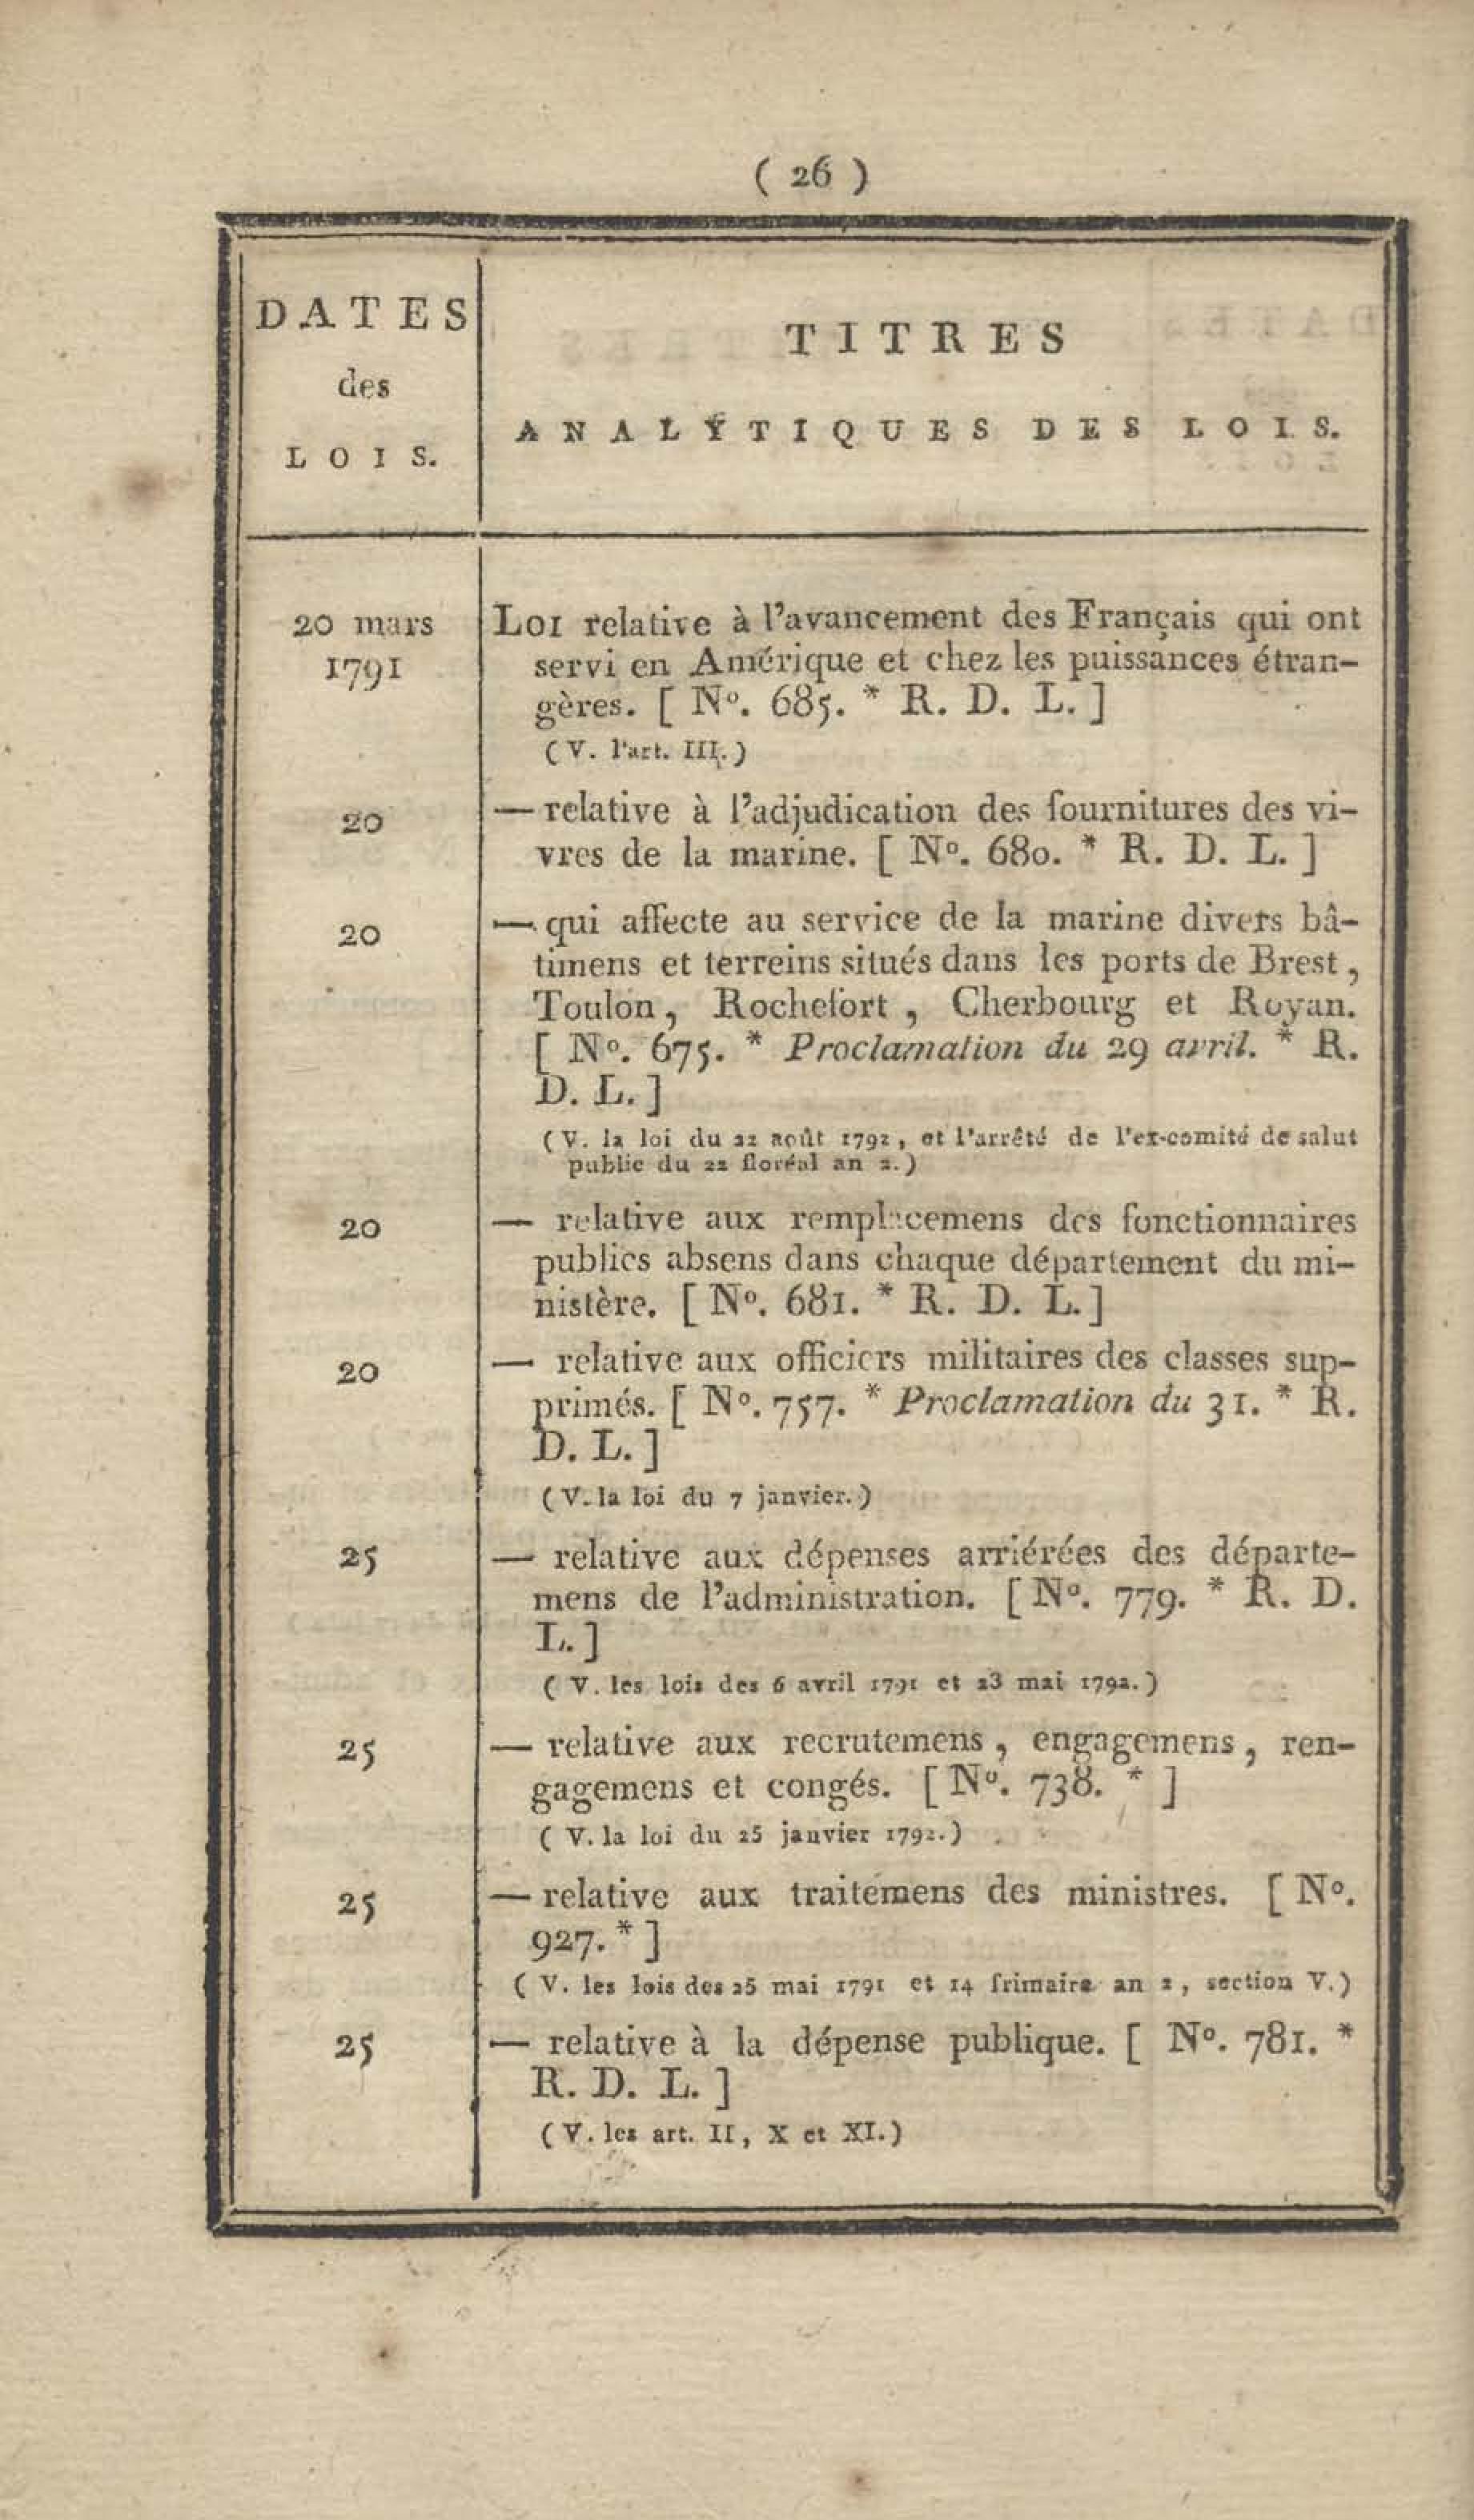 ( 26 )
DATES
des
LOIS.
TITRES
ANALYTIQUES DES LOIS.
20 mars
1791
LOI relative à l'avancement des Français qui ont
servi en Amérique et chez les puissances étran-
gères. [ Nº. 685. * R. D. L. ]
( V. l'art. III. )
20
— relative à l'adjudication des fournitures des vi-
vres de la marine. [ Nº. 680. * R. D. L. ]
20
— qui affecte au service de la marine divers bâ-
timens et terreins situés dans les ports de Brest,
Toulon, Rochefort, Cherbourg et Royan.
[ Nº. 675. * Proclamation du 29 avril. * R.
D. L. ]
( V. la loi du 22 août 1792, et l'arrêté de l'ex-comité de salut
public du 22 floréal an 2. )
20
— relative aux remplacemens des fonctionnaires
publics absens dans chaque département du mi-
nistère. [ Nº. 681. * R. D. L. ]
20
— relative aux officiers militaires des classes sup-
primés. [ Nº. 757. * Proclamation du 31. * R.
D. L. ]
( V. la loi du 7 janvier. )
25
— relative aux dépenses arriérées des départe-
mens de l'administration. [ Nº. 779. * R. D.
L. ]
( V. les lois des 6 avril 1791 et 23 mai 1792. )
25
— relative aux recrutemens, engagemens, ren-
gagemens et congés. [ Nº. 738. * ]
( V. la loi du 25 janvier 1792. )
25
— relative aux traitemens des ministres. [ Nº.
927. * ]
( V. les lois des 25 mai 1791 et 14 frimaire an 2, section V. )
25
— relative à la dépense publique. [ Nº. 781. *
R. D. L. ]
( V. les art. II, X et XI. )